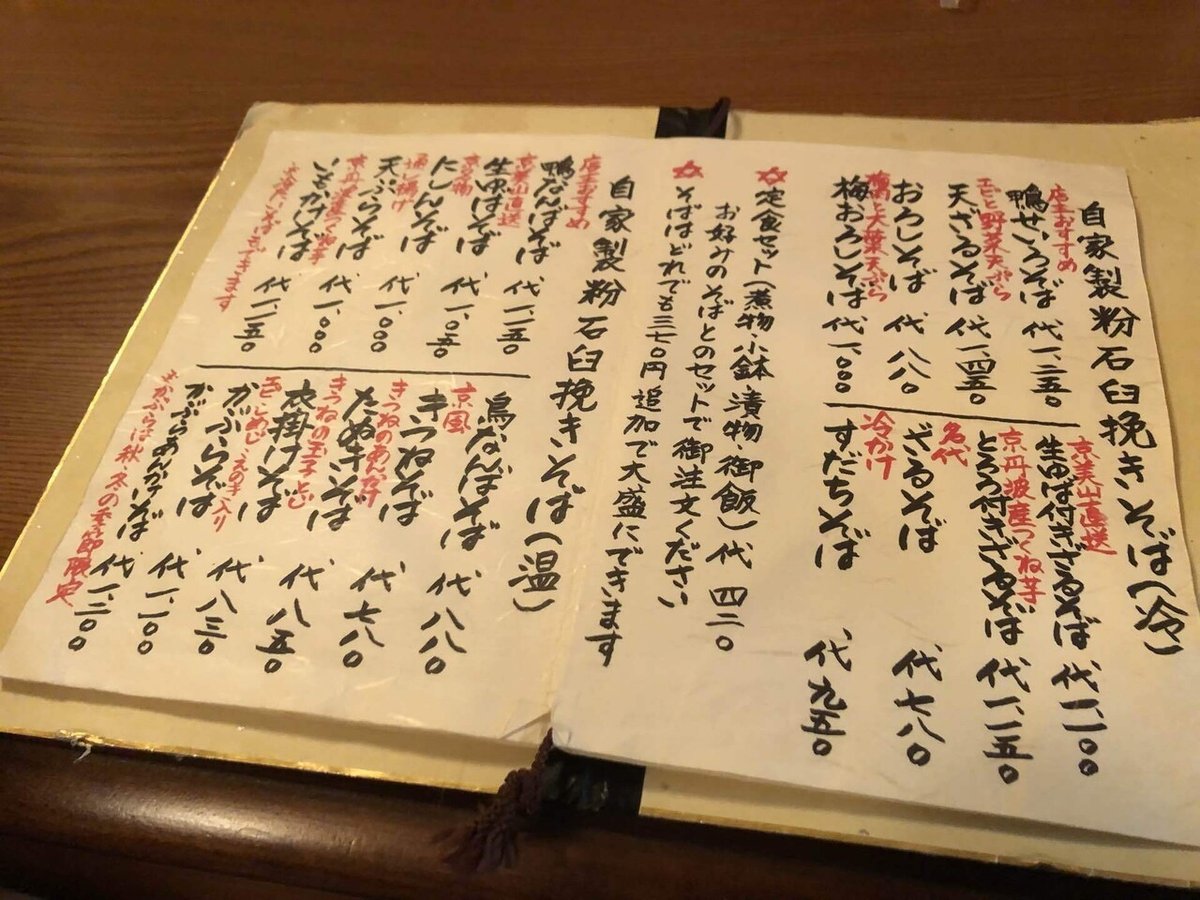 自家製粉石臼挽きそば(冷)
店主おすすめ
鴨せいろそば 代一、二五〇
エビと野菜天ぷら
天ざるそば 代一、四五〇
おろしそば 代八八〇
梅肉と大葉天ぷら
梅おろしそば 代一、〇〇〇
京美山直送
生ゆば付きざるそば 代一、一〇〇
京丹波産つくね芋
とろろ付きざるそば 代一、一五〇
名代
ざるそば 代七八〇
冷かけ
すだちそば 代九五〇
定食セット(煮物・小鉢・漬物・御飯)代 四二〇
お好みのそばとのセットで御注文ください
そばはどれでも三七〇円追加で大盛にできます
自家製粉石臼挽きそば(温)
店主おすすめ
鴨なんばそば 代一、二五〇
京美山直送
生ゆばそば 代一、一五〇
京名物
にしんそば 代一、〇五〇
通し揚げ
天ぷらそば 代一、〇〇〇
いもかけそば 代一、〇〇〇
鳥なんばそば 代八八〇
京風
きつねそば 代七八〇
きつねのあんかけ
たぬきそば 代八五〇
きつねの玉子とじ
衣掛けそば 代八三〇
エビ・しめじ・えのき入り
かぶらそば 代一、一〇〇
かぶらあんかけそば 代一、二〇〇
かぶらは秋・冬の季節限定